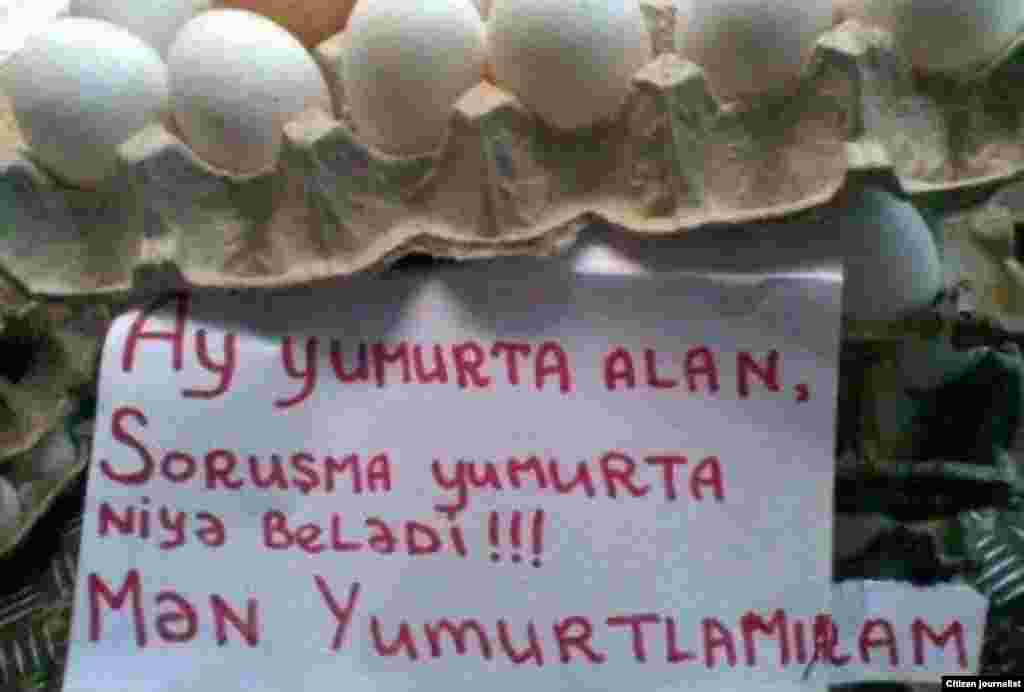 Ay yumurta alan,
Soruşma yumurta
niyə belədi!!!
Mən Yumurtlamıram
Citizen journalist